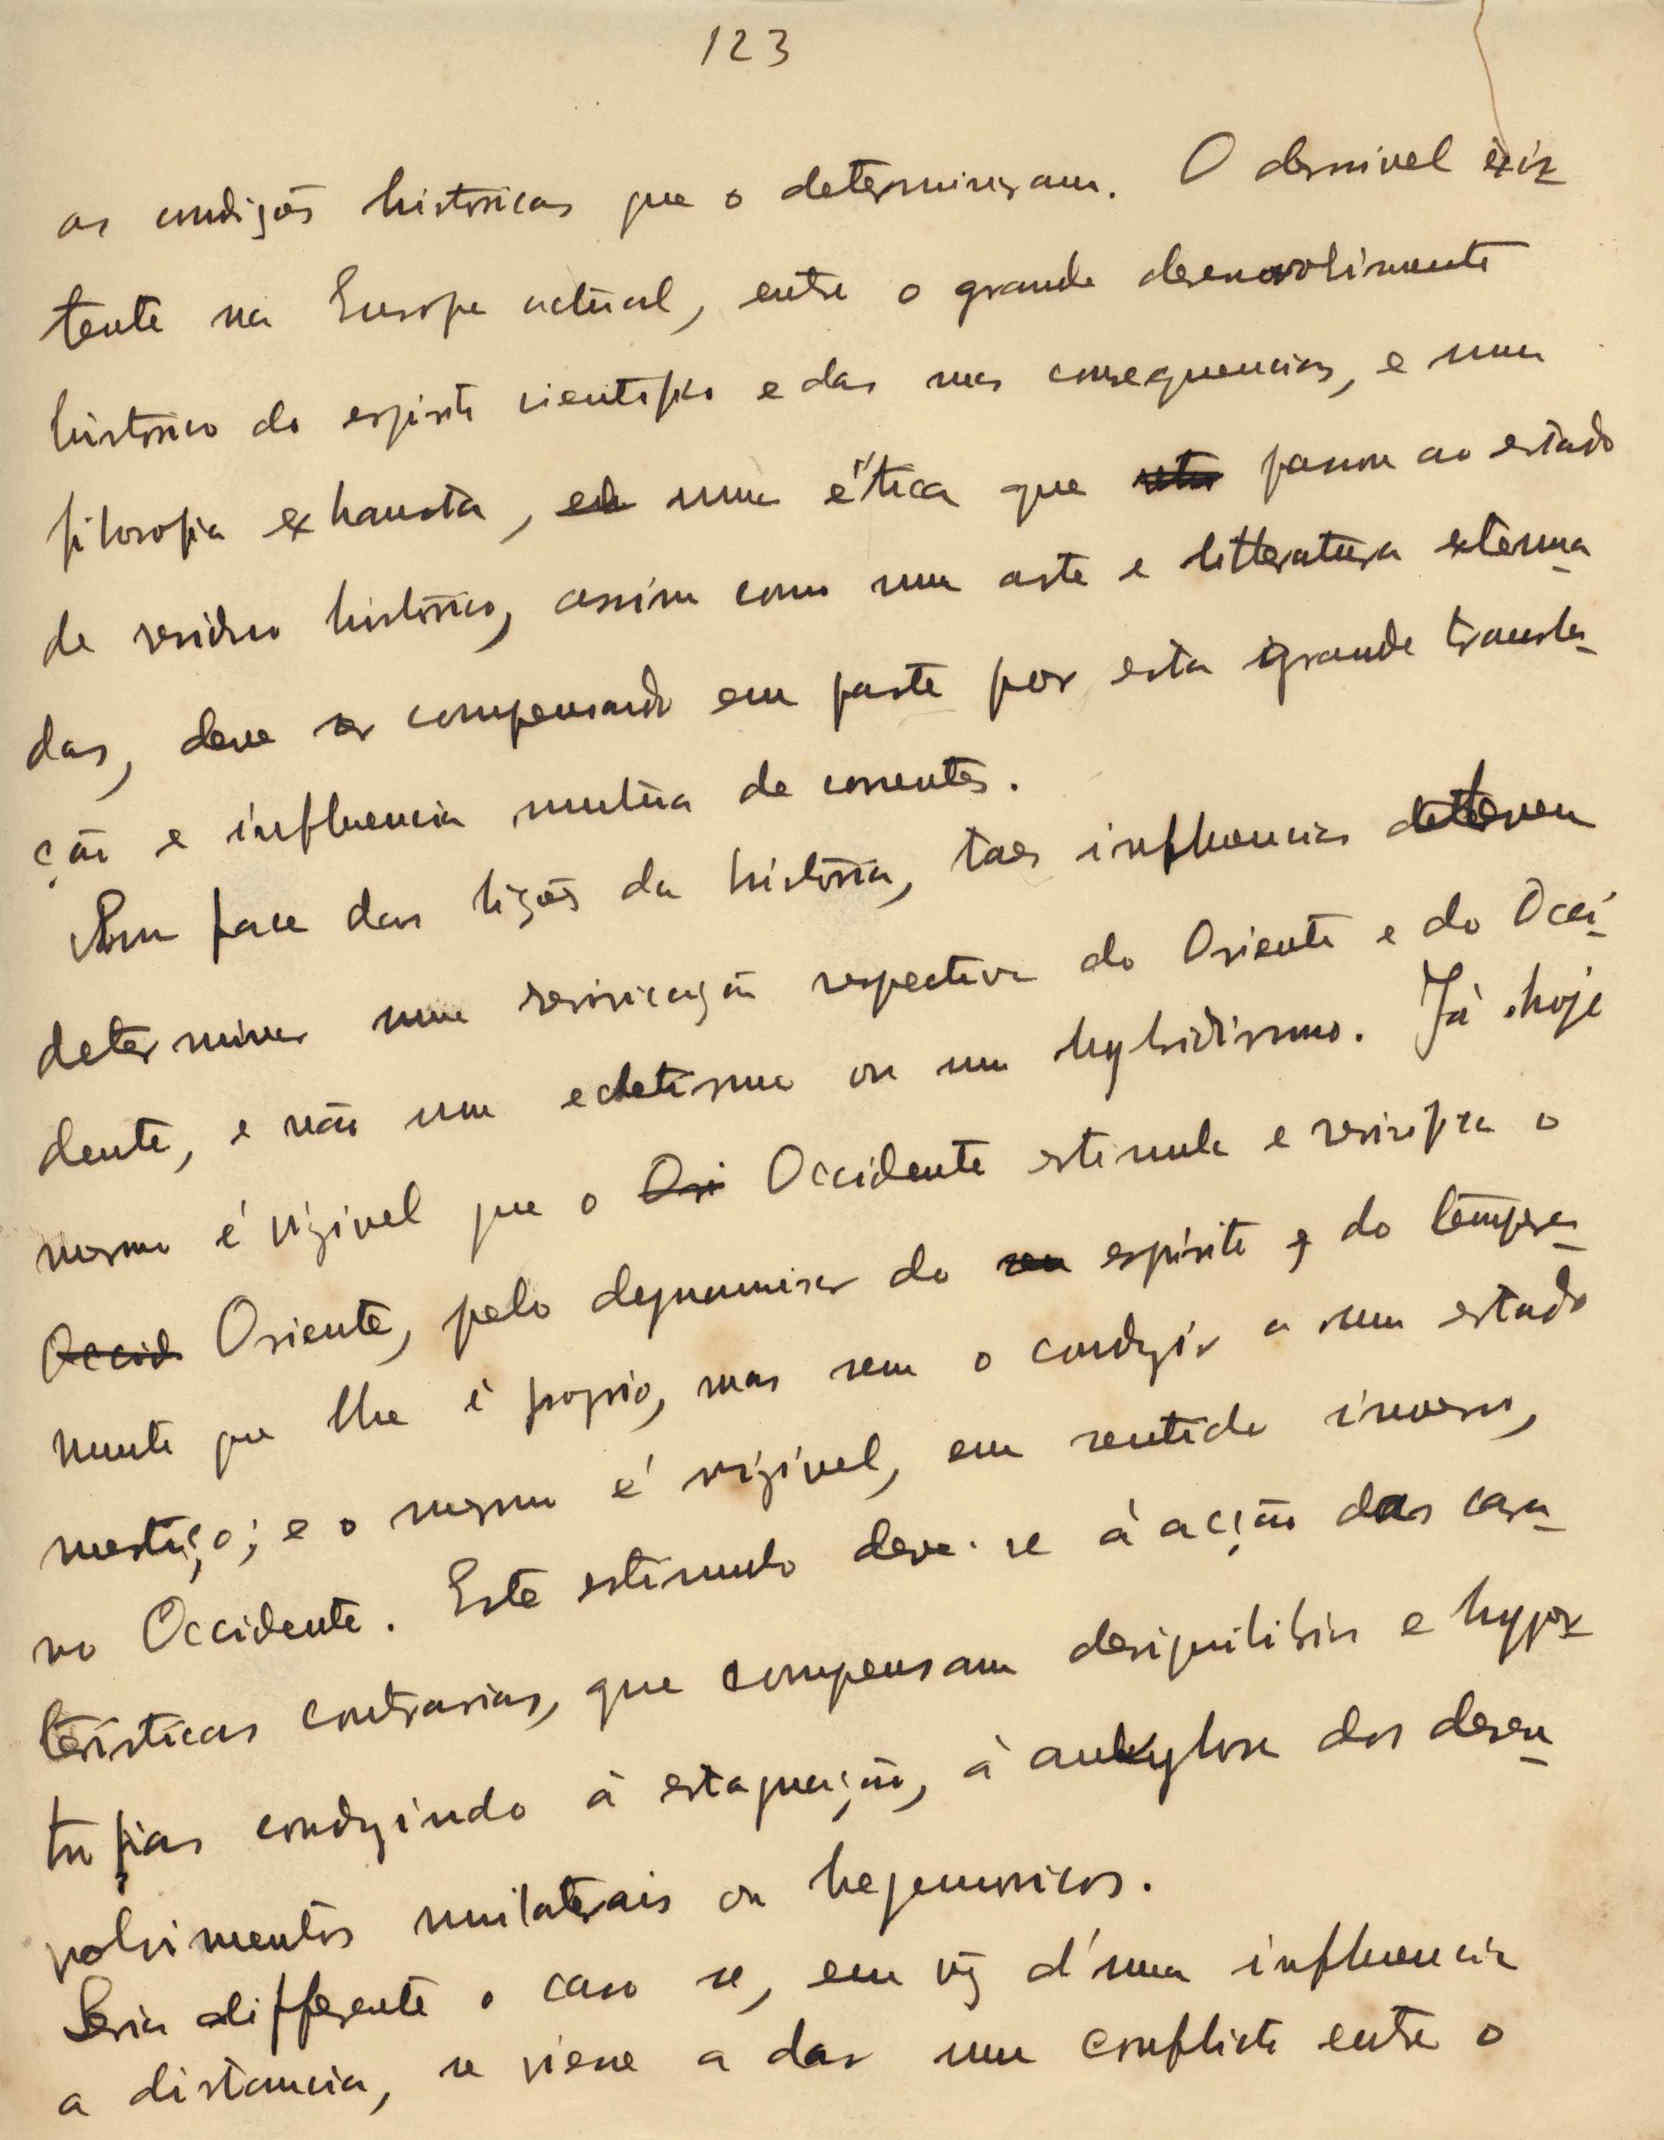 123
as condições historicas que o determinaram. O desnivel exis
tente na Europa actual, entre o grande desenvolvimento
historico do espirito cientifico e das suas consequencias, e uma
filosofia exhausta, uma ética que passou ao estado
de residuo historico, assim como uma arte e litteratura extenua-
das, deve ser compensando em parte por esta grande transla-
ção e influencia mutua de correntes.
Em face das lições da historia, taes influencias devem
determinar uma revivicação respectiva do Oriente e do Occi-
dente, e não um ecletismo ou um hybridismo. Já hoje
mesmo é vizivel que o Ori Occidente estimula e revivifica o
Occid. Oriente, pelo dynamismo do seu espirito e do tempera-
mento que lhe é proprio, mas sem o conduzir a um estado
mestiço; e o mesmo é vizivel, em sentido inverso,
no Occidente. Este estimulo deve-se á acção das cara-
teristicas contrarias, que compensam desiquilibrios e hyper
trofias conduzindo á estagnação, á ankylose dos desen-
volvimentos unilaterais ou hegemonicos.
Seria differente o caso se, em vez d'uma influencia
a distancia, se viesse a dar um conflicto entre o